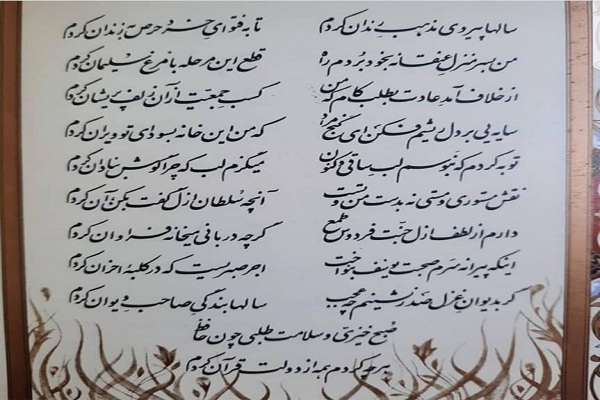 سالها پیروی مذهب رندان کردم تا به فتوای خرد حرص به زندان کردم
من به سرمنزل عنقا نه به خود بردم راه قطع این مرحله با مرغ سلیمان کردم
از خلاف آمد عادت بطلب کام که من کسب جمعیت از آن زلف پریشان کردم
سایه یی بر دل ریشم فکن ای گنج مراد که من این خانه به سودای تو ویران کردم
توبه کردم که نبوسم لب ساقی و کنون میگزم لب که چرا گوش به نادان کردم
نقش مستوری و مستی نه به دست من و تست آنچه سلطان ازل گفت بکن آن کردم
دارم از لطف ازل جنت فردوس طمع گرچه دربانی میخانه فراوان کردم
اینکه پیرانه سرم صحبت یوسف بنواخت اجر صبریست که در کلبه احزان کردم
گر به دیوان غزل صدرنشینم چه عجب سالها بندگی صاحب دیوان کردم
صبح خیزی و سلامت طلبی چون حافظ
هر چه کردم همه از دولت قرآن کردم